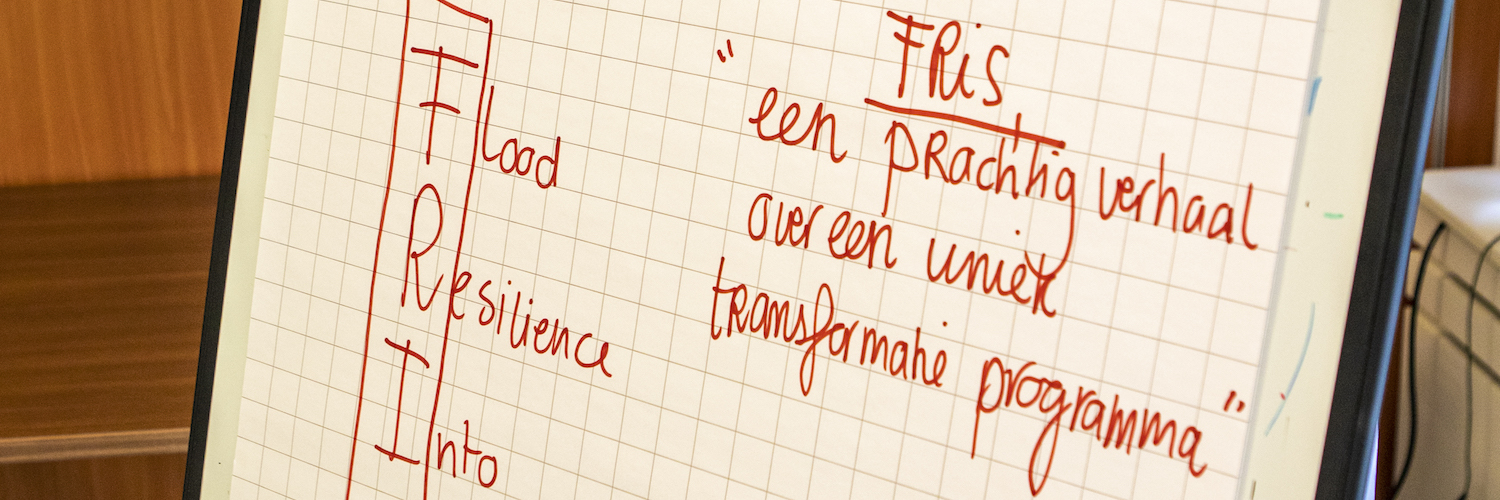 Flood
Resilience
Into
FRiS
"een prachtig verhaal
over een uniek
transformatie programma"